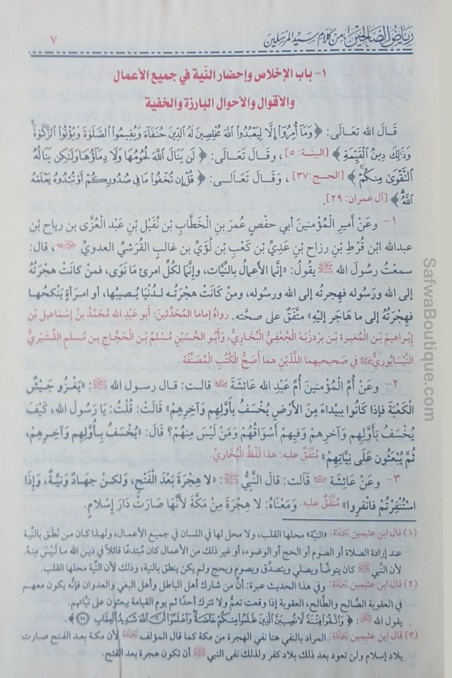 رياض الصالحين من كلام سيد المرسلين ٧
١- باب الإخلاص وإحضار النّية في جميع الأعمال
والأقوال والأحوال البارزة والخفية
قَالَ الله تَعَالَى: ﴿وَمَا أُمِرُوا إِلَّا لِيَعْبُدُوا اللَّهَ مُخْلِصِينَ لَهُ الدِّينَ حُنَفَاءَ وَيُقِيمُوا الصَّلَوٰةَ وَيُؤْتُوا الزَّكَوٰةَ
وَذَلِكَ دِينُ الْقَيِّمَةِ﴾ [البينة: ٥]، وقَالَ تَعَالَى: ﴿لَن يَنَالَ اللَّهَ لُحُومُهَا وَلَا دِمَاؤُهَا وَلَكِن يَنَالُهُ
التَّقْوَىٰ مِنكُمْ﴾ [الحج: ٣٧]، وَقَالَ تَعَالَى: ﴿قُلْ إِن تُخْفُوا مَا فِي صُدُورِكُمْ أَوْ تُبْدُوهُ يَعْلَمْهُ
اللَّهُ﴾ [آل عمران: ٢٩].
١- وعَنْ أَميرِ الْمُؤْمِنِينَ أبي حفْصٍ عُمرَ بنِ الْخَطَّابِ بْن نُفَيْل بْنِ عَبْد الْعُزَّى بن رياح بْن
عبدالله ابْن قُرْطِ بْنِ رزاح بْنِ عَدِيِّ بْن كَعْبِ بْن لُؤَيِّ بن غالبٍ القُرَشِيِّ العدويِّ، قال:
سمعْتُ رسُولَ الله ﷺ يقُولُ: «إنَّما الأَعمالُ بالنِّيَّات، وإِنَّمَا لِكُلِّ امرئٍ مَا نَوَى، فمنْ كانَتْ هجْرَتُهُ
إِلَى الله ورَسُولِه فهجرتُه إلى الله ورسُولِهِ، ومنْ كاَنْت هجْرَتُه لدُنْيَا يُصيبُها، أَو امرَأَةٍ يَنْكحُها
فهْجْرَتُهُ إلى ما هَاجَر إليْهِ» متَّفَقٌ على صحَّتِه. رواهُ إِماما المُحَدِّثِين: أَبو عَبدِ الله مُحَمَّدُ بنُ إِسْمَاعيل بْن
إِبْراهيمَ بْن المُغيرة بْن برْدزْبَةَ الْجُعْفِيُّ الْبُخَارِيُّ، وَأَبُو الحُسَيْنِ مُسْلمُ بْن الْحَجَّاجِ بن مُسلمٍ القُشَيْريُّ
النَّيْسَابُوريُّ في صَحيحيهما اللَّذَيْنِ هما أَصَحُّ الْكُتُبِ الْمُصَنَّفَة.
٢- وَعَنْ أُمِّ الْمُؤْمِنِينَ أُمِّ عَبْدِ الله عَائشَةَ قالت: قال رسول الله ﷺ: «يَغْزُو جَيْشٌ
الْكَعْبَةَ فَإِذَا كَانُوا ببيْداءَ مِنَ الأَرْضِ يُخْسَفُ بأَوَّلِهِم وَآخِرِهِمْ» قَالَتْ: قُلْتُ: يَا رَسُولَ الله، كَيْفَ
يُخْسَفُ بِأَوَّلِهِم وَآخِرِهِمْ وَفِيهِمْ أَسْوَاقُهُمْ وَمَنْ لَيْسَ مِنهُمْ؟ قَالَ: «يُخْسَفُ بِأَوَّلِهِم وَآخِرِهِمْ،
ثُمَّ يُبْعَثُون عَلَى نِيَّاتِهِمْ» مُتَّفَقٌ عليه: هذا لَفْظُ الْبُخَارِيّ.
٣- وعَنْ عَائِشَة قَالَت: قالَ النَّبِيُّ ﷺ: «لا هِجْرَةَ بَعْدَ الْفَتْحِ، وَلكنْ جِهَادٌ وَنِيَّةٌ، وَإِذَا
اسْتُنْفِرْتُمْ فانْفِرُوا» مُتَّفَقٌ عليه وَمَعْنَاهُ: لا هِجْرَةَ مِنْ مَكَّةَ لأَنَّهَا صَارَتْ دَارَ إِسْلامٍ.
(١) قال ابن عثيمين: «النيّة» محلها القلب، ولا محل لها في اللسان في جميع الأعمال، ولهذا كان من نطق بالنّية
عند إرادة الصلاة أو الصوم أو الحج أو الوضوء، أو غير ذلك من الأعمال كان مُبتدعًا قائلاً في دين الله ما ليس منه.
لأن النبي ﷺ كان يتوضأ ويصلي ويتصدّق ويصوم ويحج ولم يكن ينطق بالنية، وذلك لأن النّية محلها القلب.
(٢) قال ابن عثيمين: وفي هذا الحديث عبرة: أنَّ من شارك أهل الباطل وأهل البغي والعدوان فإنّه يكون معهم
في العقوبة الصَّالح والطَّالح، العقوبة إذا وقعت تعمُّ ولا تترك أحدًا ثم يوم القيامة يبعثون على نيَّاتهم.
يقول الله: ﴿وَاتَّقُوا فِتْنَةً لَّا تُصِيبَنَّ الَّذِينَ ظَلَمُوا مِنكُمْ خَاصَّةً وَاعْلَمُوا أَنَّ اللَّهَ شَدِيدُ الْعِقَابِ﴾
(٣) قال ابن عثيمين: المراد بالنفي هنا نفي الهجرة من مكة كما قال المؤلف لأن مكة بعد الفتح صارت
بلاد إسلام ولن تعود بعد ذلك بلاد كفر ولذلك نفى النبي ﷺ أن تكون هجرة بعد الفتح.
SafwaBoutique.com